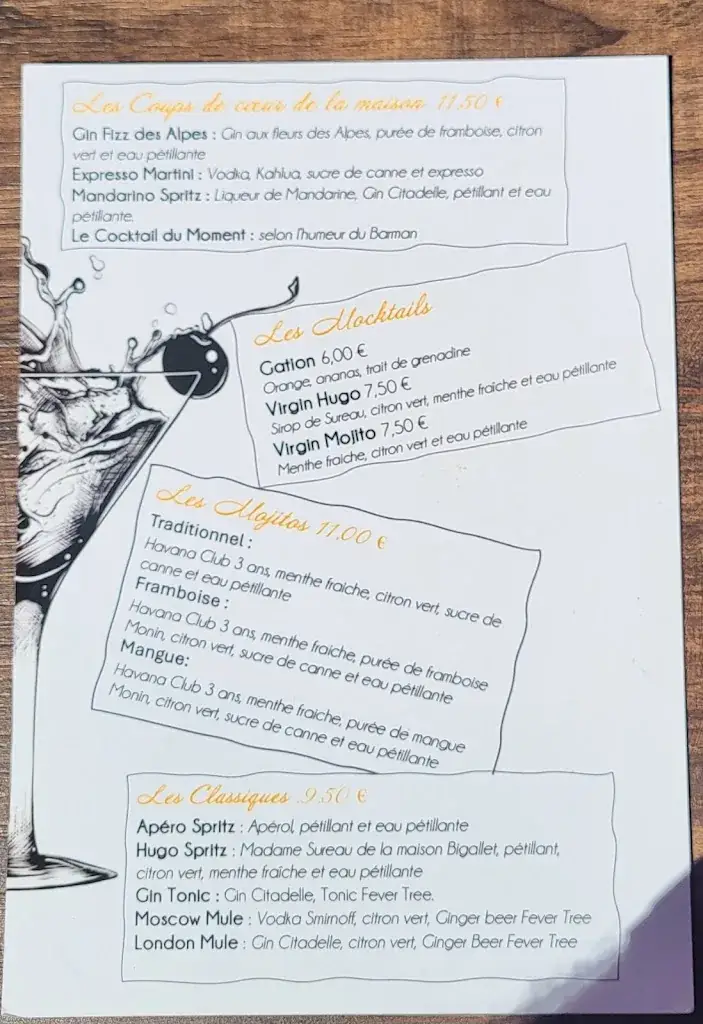 Les Coups de cœur de la maison 11.50 €
Gin Fizz des Alpes : Gin aux fleurs des Alpes, purée de framboise, citron
vert et eau pétillante
Expresso Martini : Vodka, Kahlua, sucre de canne et expresso
Mandarino Spritz : Liqueur de Mandarine, Gin Citadelle, pétillant et eau
pétillante.
Le Cocktail du Moment : selon l'humeur du Barman
Les Mocktails
Gation 6,00 €
Orange, ananas, trait de grenadine
Virgin Hugo 7,50 €
Sirop de Sureau, citron vert, menthe fraiche et eau pétillante
Virgin Mojito 7,50 €
Menthe fraiche, citron vert et eau pétillante
Les Mojitos 11.00 €
Traditionnel :
Havana Club 3 ans, menthe fraiche, citron vert, sucre de
canne et eau pétillante
Framboise :
Havana Club 3 ans, menthe fraiche, purée de framboise
Monin, citron vert, sucre de canne et eau pétillante
Mangue:
Havana Club 3 ans, menthe fraiche, purée de mangue
Monin, citron vert, sucre de canne et eau pétillante
Les Classiques 9.50 €
Apéro Spritz : Apérol, pétillant et eau pétillante
Hugo Spritz : Madame Sureau de la maison Bigallet, pétillant,
citron vert, menthe fraiche et eau pétillante
Gin Tonic : Gin Citadelle, Tonic Fever Tree.
Moscow Mule : Vodka Smirnoff, citron vert, Ginger beer Fever Tree
London Mule : Gin Citadelle, citron vert, Ginger Beer Fever Tree